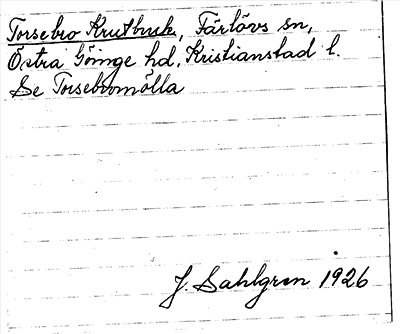 Torsebro Krutbruk, Färlövs sn,
Östra Göinge hd, Kristianstad l.
Se Torsebromölla
J. Sahlgren 1926